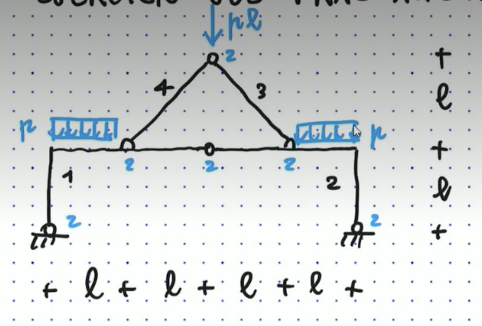 pl
2
4 3
p p
2 2 2
1 2
2 2
+ l + l +
+ l + l + l + l +